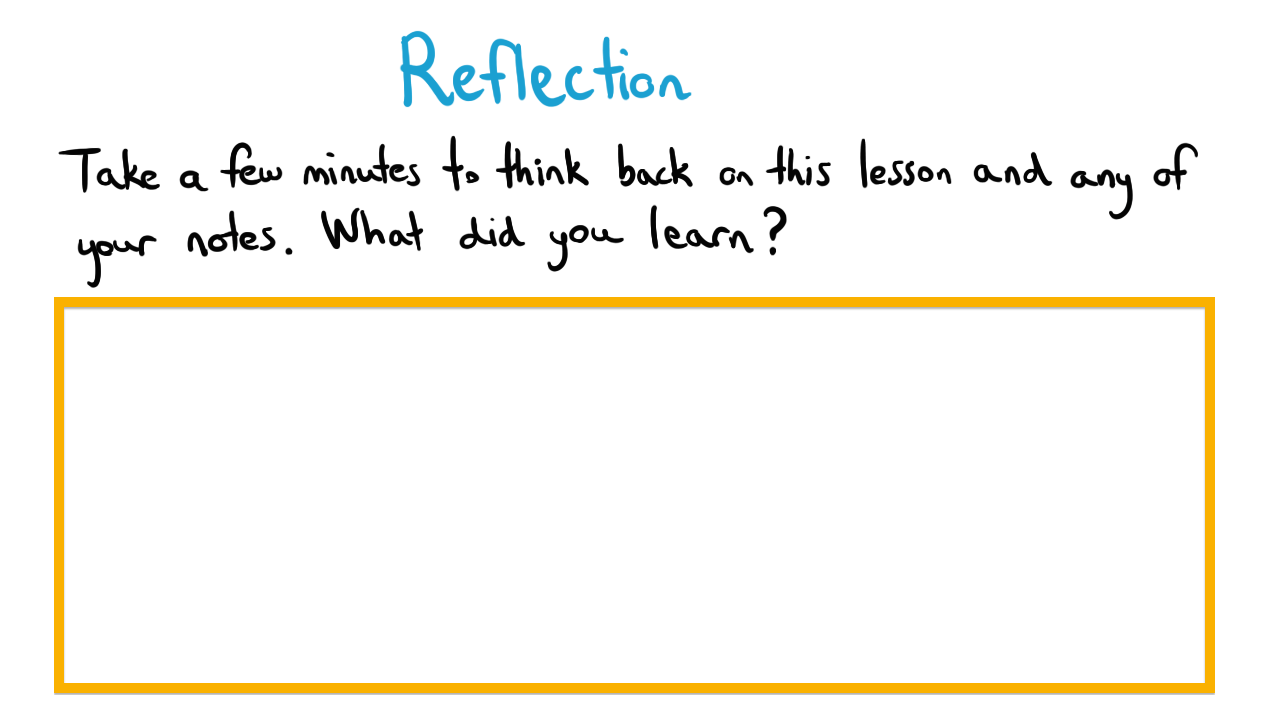 Reflection
Take a few minutes to think back on this lesson and any of
your notes. What did you learn?